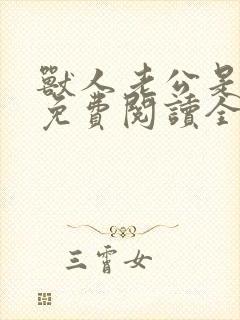 獸人老公是
免費閱讀全
三霄女